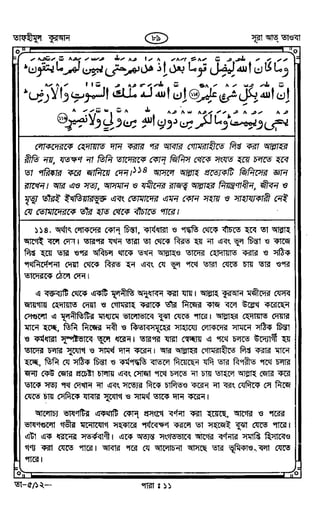 তাফহীমুল কুরআন
৮৯
সূরা আত্ তাওবা
وَمَا كَانَ اللهُ لِيُضِلَّ قَوْمًا بَعْدَ إِذْ هَدٰىهُمْ حَتّٰى يُبَيِّنَ لَهُمْ مَّا يَتَّقُوْنَ ؕ
إِنَّ اللهَ بِكُلِّ شَيْءٍ عَلِيْمٌ ﴿١١٥﴾ إِنَّ اللهَ لَهٗ مُلْكُ السَّمٰوٰتِ وَالْاَرْضِ ؕ
يُحْيٖ وَيُمِيْتُ ؕ وَمَا لَكُمْ مِّنْ دُوْنِ اللهِ مِنْ وَّلِيٍّ وَّلَا نَصِيْرٍ ﴿١١٦﴾
লোকদেরকে হেদায়াত দান করার পর আবার গোমরাহীতে লিপ্ত করা আল্লাহর
রীতি নয়, যতক্ষণ না তিনি তাদেরকে কোন্ জিনিস থেকে সংযত হয়ে চলতে হবে
তা পরিষ্কার করে জানিয়ে দেন।১১৪ আসলে আল্লাহ প্রত্যেকটি জিনিসের জ্ঞান
রাখেন। আর এও সত্য, আসমান ও যমীনের রাজত্ব আল্লাহর নিয়ন্ত্রণাধীন, জীবন ও
মৃত্যু তাঁরই ইখতিয়ারভুক্ত এবং তোমাদের এমন কোন সহায় ও সাহায্যকারী নেই
যে তোমাদেরকে তাঁর হাত থেকে বাঁচাতে পারে।
১১৪. অর্থাৎ লোকদের কোন্ চিন্তা, কার্যধারা ও পদ্ধতি থেকে বাঁচতে হবে তা আল্লাহ
আগেই বলে দেন। তারপর যখন তারা তা থেকে বিরত হয় না এবং ভুল চিন্তা ও কাজে
লিপ্ত হয়ে তার ওপর অবিচল থাকে তখন আল্লাহও তাদের হেদায়াত করার ও সঠিক
পথনির্দেশনা দেয়া থেকে বিরত হন এবং যে ভুল পথে তারা যেতে চায় তার ওপর
তাদেরকে ঠেলে দেন।
এ বক্তব্যটি থেকে একটি মূলনীতি অনুধাবন করা যায়। আল্লাহ কুরআন মজীদের যেসব
জায়গায় হেদায়াত দেয়া ও গোমরাহ করাকে তাঁর নিজের কাজ বলে উল্লেখ করেছেন
সেগুলো এ মূলনীতিটির মাধ্যমে ভালোভাবে বুঝা যেতে পারে। আল্লাহর হেদায়াত দেয়ার
মানে হচ্ছে, তিনি নিজের নবী ও কিতাবসমূহের সাহায্যে লোকদের সামনে সঠিক চিন্তা
ও কর্মধারা সুস্পষ্টভাবে তুলে ধরেন। তারপর যারা স্বেচ্ছায় এ পথে চলতে উদ্যোগী হয়
তাদের চলার সুযোগ ও সামর্থ দান করেন। আর আল্লাহর গোমরাহীতে লিপ্ত করার মানে
হচ্ছে, তিনি যে সঠিক চিন্তা ও কর্মপদ্ধতি বাতলে দিয়েছেন যদি তার বিপরীত পথে চলার
জন্য কেউ জোর প্রচেষ্টা চালায় এবং সোজা পথে চলতে না চায় তাহলে আল্লাহ জোর করে
তাকে সত্য পথ দেখান না এবং সত্যের দিকে চালিতও করেন না বরং যেদিকে সে নিজে
যেতে চায় সেদিকে যাবার সুযোগ ও সামর্থ তাকে দান করেন।
আলোচ্য ভাষণটির একথাটি কোন্ প্রসংগে বর্ণনা করা হয়েছে, আগের ও পরের
ভাষণগুলো গভীর মনোযোগ সহকারে পর্যবেক্ষণ করলে তা সহজেই বুঝা যেতে পারে।
এটা এক ধরনের সতর্কবাণী। একে অত্যন্ত সংগতভাবে আগের বর্ণনার সমাপ্তি হিসাবেও
গণ্য করা যেতে পারে। আবার পরে যে আলোচনা আসছে তার ভূমিকাও, বলা যেতে
পারে।
তা-৫/১২—
পারা : ১১